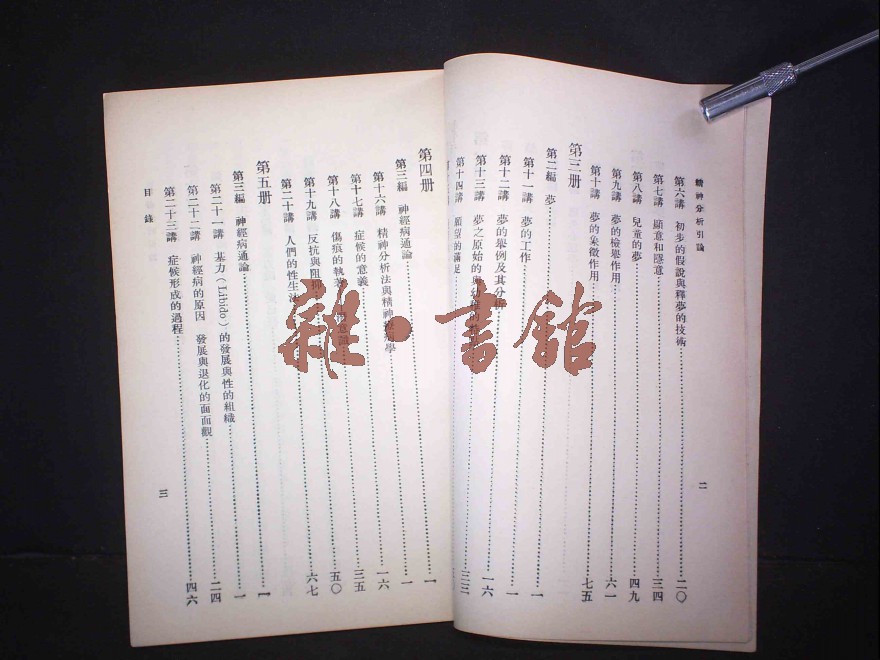 精神分析引論
第六講 初步的假說與釋夢的技術 二〇
第七講 顯意和隱意 三四
第八講 兒童的夢 四九
第九講 夢的檢舉作用 六一
第十講 夢的象徵作用 七五
第三册
第二編 夢 一
第十一講 夢的工作 一
第十二講 夢的舉例及其分析
第十三講 夢之原始的與幼稚的 一六
第十四講 願望的滿足 三三
二
第四册
第三編 神經病通論 一
第十六講 精神分析法與精神病學 一六
第十七講 症候的意義 三五
第十八講 傷痕的執著 意識 五〇
第十九講 反抗與阻抑 六七
第二十講 人們的性生活
第五册
第三編 神經病通論 一
第二十一講 基力(Libido)的發展與性的組織 二四
第二十二講 神經病的原因 發展與退化的面面觀
第二十三講 症候形成的過程 四六
目錄
三
雜·書館